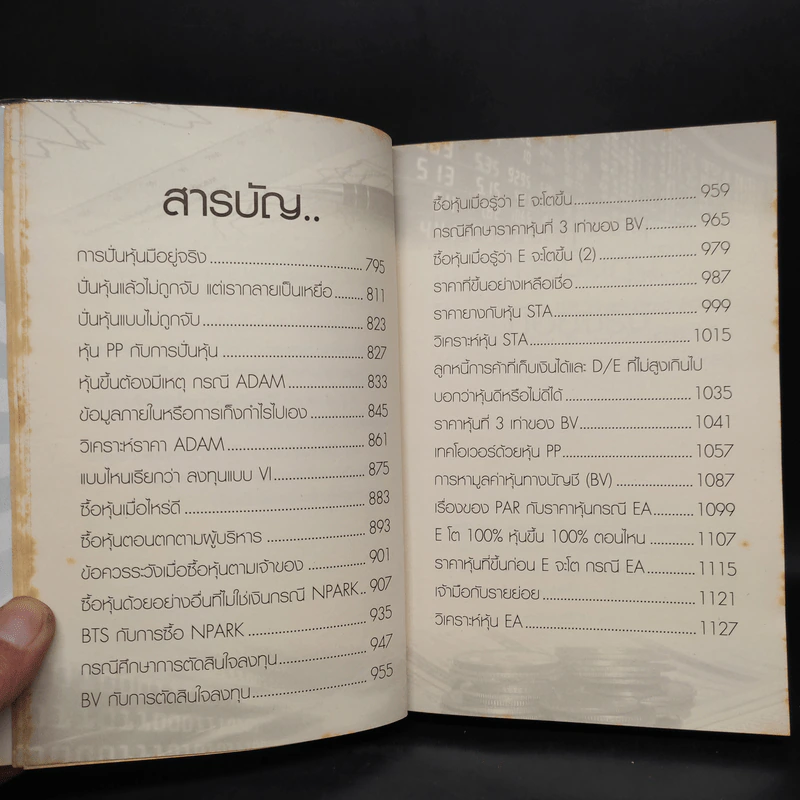 สารบัญ..
การปั่นหุ้นมีอยู่จริง 795
ปั่นหุ้นแล้วไม่ถูกจับ แต่เรากลายเป็นเหยื่อ 811
ปั่นหุ้นแบบไม่ถูกจับ 823
หุ้น PP กับการปั่นหุ้น 827
หุ้นขึ้นต้องมีเหตุ กรณี ADAM 833
ข้อมูลภายในหรือการเก็งกำไรไปเอง 845
วิเคราะห์ราคา ADAM 861
แบบไหนเรียกว่า ลงทุนแบบ VI 875
ซื้อหุ้นเมื่อไหร่ดี 883
ซื้อหุ้นตอนตกตามผู้บริหาร 893
ข้อควรระวังเมื่อซื้อหุ้นตามเจ้าของ 901
ซื้อหุ้นด้วยอย่างอื่นที่ไม่ใช่เงินกรณี NPARK 907
BTS กับการซื้อ NPARK 935
กรณีศึกษาการตัดสินใจลงทุน 947
BV กับการตัดสินใจลงทุน 955
ซื้อหุ้นเมื่อรู้ว่า E จะโตขึ้น 959
กรณีศึกษาราคาหุ้นที่ 3 เท่าของ BV 965
ซื้อหุ้นเมื่อรู้ว่า E จะโตขึ้น (2) 979
ราคาที่ขึ้นอย่างเหลือเชื่อ 987
ราคายางกับหุ้น STA 999
วิเคราะห์หุ้น STA 1015
ลูกหนี้การค้าที่เก็บเงินได้และ D/E ที่ไม่สูงเกินไป
บอกว่าหุ้นดีหรือไม่ดีได้ 1035
ราคาหุ้นที่ 3 เท่าของ BV 1041
เทคโอเวอร์ด้วยหุ้น PP 1057
การหามูลค่าหุ้นทางบัญชี (BV) 1087
เรื่องของ PAR กับราคาหุ้นกรณี EA 1099
E โต 100% หุ้นขึ้น 100% ตอนไหน 1107
ราคาหุ้นที่ขึ้นก่อน E จะโต กรณี EA 1115
เจ้ามือกับรายย่อย 1121
วิเคราะห์หุ้น EA 1127